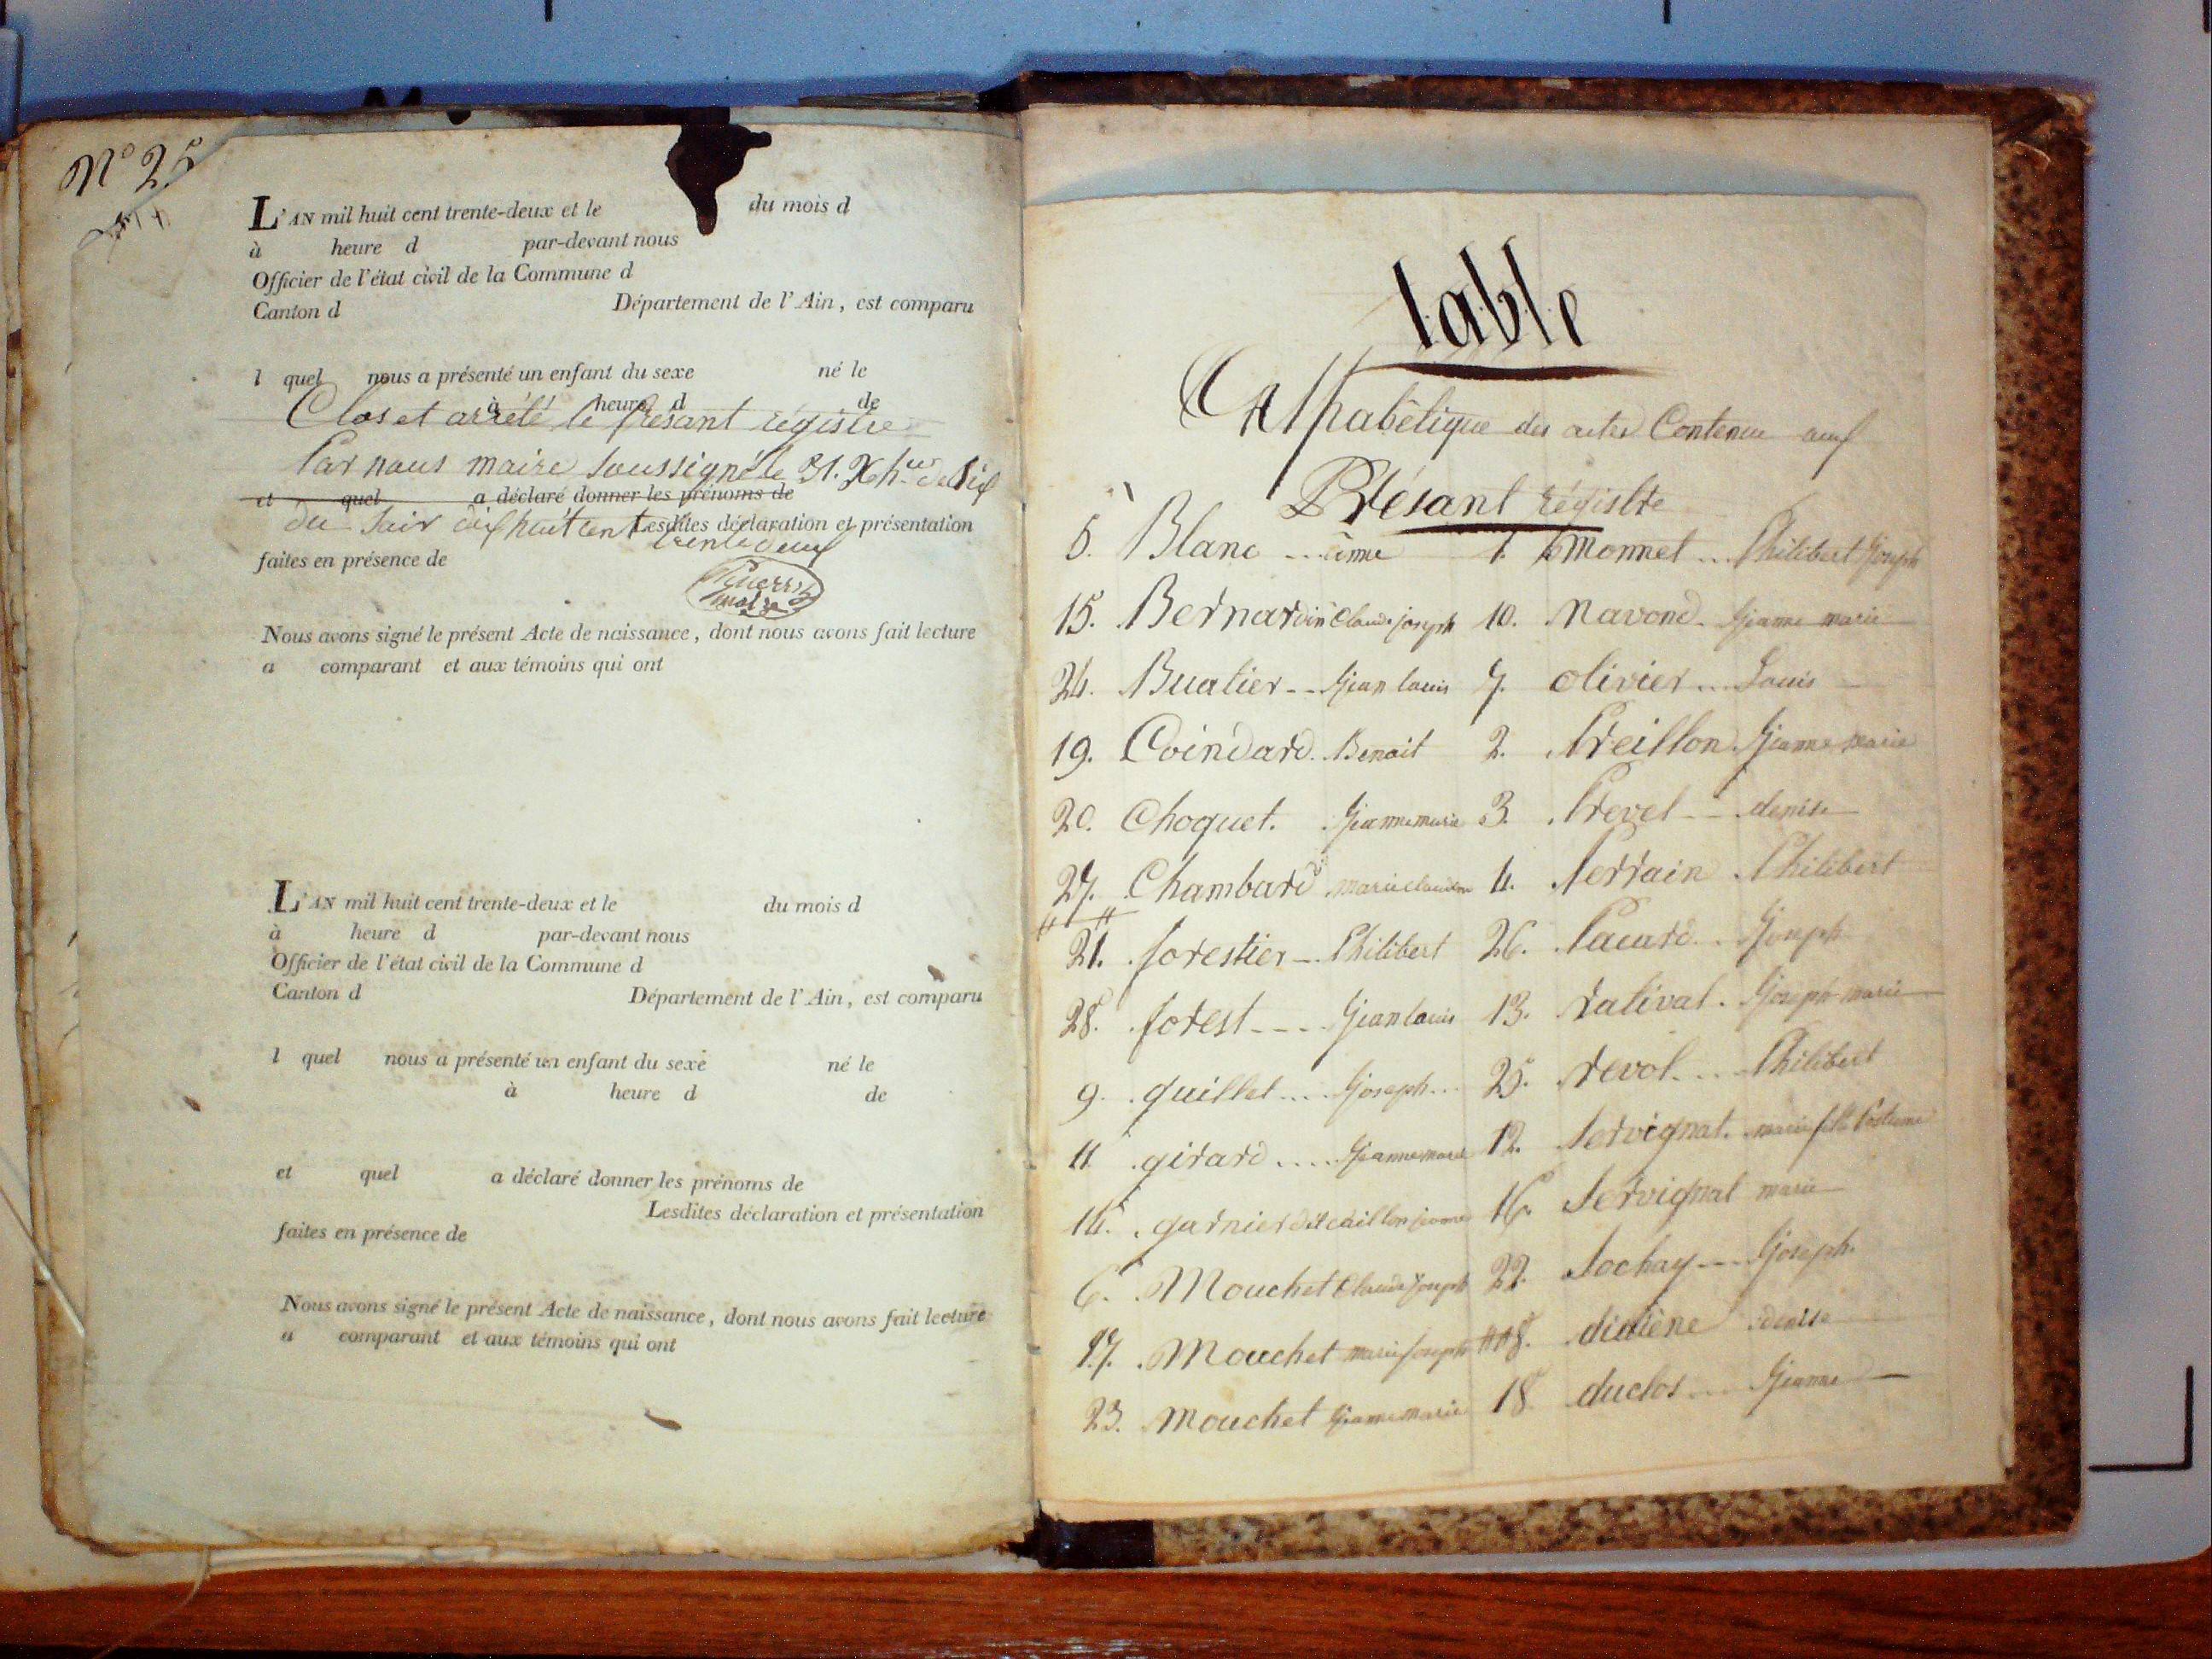 N° 25
L'AN mil huit cent trente-deux et le du mois d
à heure d par-devant nous
Officier de l'état civil de la Commune d
Canton d Département de l'Ain, est comparu
l quel nous a présenté un enfant du sexe né le
à heure d de
Clos et arrêté le présant régistre
Par nous maire soussigné le 31. Xbre
et quel a déclaré donner les prénoms de
du soir dix huit cent
Lesdites déclaration et présentation
trente deux
faites en présence de
Nous avons signé le présent Acte de naissance, dont nous avons fait lecture
a comparant et aux témoins qui ont
L'AN mil huit cent trente-deux et le du mois d
à heure d par-devant nous
Officier de l'état civil de la Commune d
Canton d Département de l'Ain, est comparu
l quel nous a présenté un enfant du sexe né le
à heure d de
et quel a déclaré donner les prénoms de
Lesdites déclaration et présentation
faites en présence de
Nous avons signé le présent Acte de naissance, dont nous avons fait lecture
a comparant et aux témoins qui ont
table
Alphabétique des actes Contenu
Présant régistre
5. Blanc 1. Monnet Philibert Joseph
15. Bernardin Claude joseph 10. Navond Jeanne marie
24. Buatier Jean louis 7. olivier Louis
19. Coindard Benoit 2. Preillon Jeanne marie
20. Choquet. Jeanne marie 3. Prevel denise
27. Chambard marie claudine 4. Perrain Philibert
21. forestier Philibert 26. Pacard Joseph
28. forest Jean louis 13. ratival. Joseph marie
9. guillet Joseph 25. revol Philibert
11. girard Jeanne marie 12. Servignat. marie fille Postume
14. garnier dit 16. Servignat marie
6. Mouchet Claude Joseph 22. Sochay Joseph
17. Mouchet marie Joseph 8. didiène denise
23. Mouchet Jeanne marie 18 duclos Jeanne